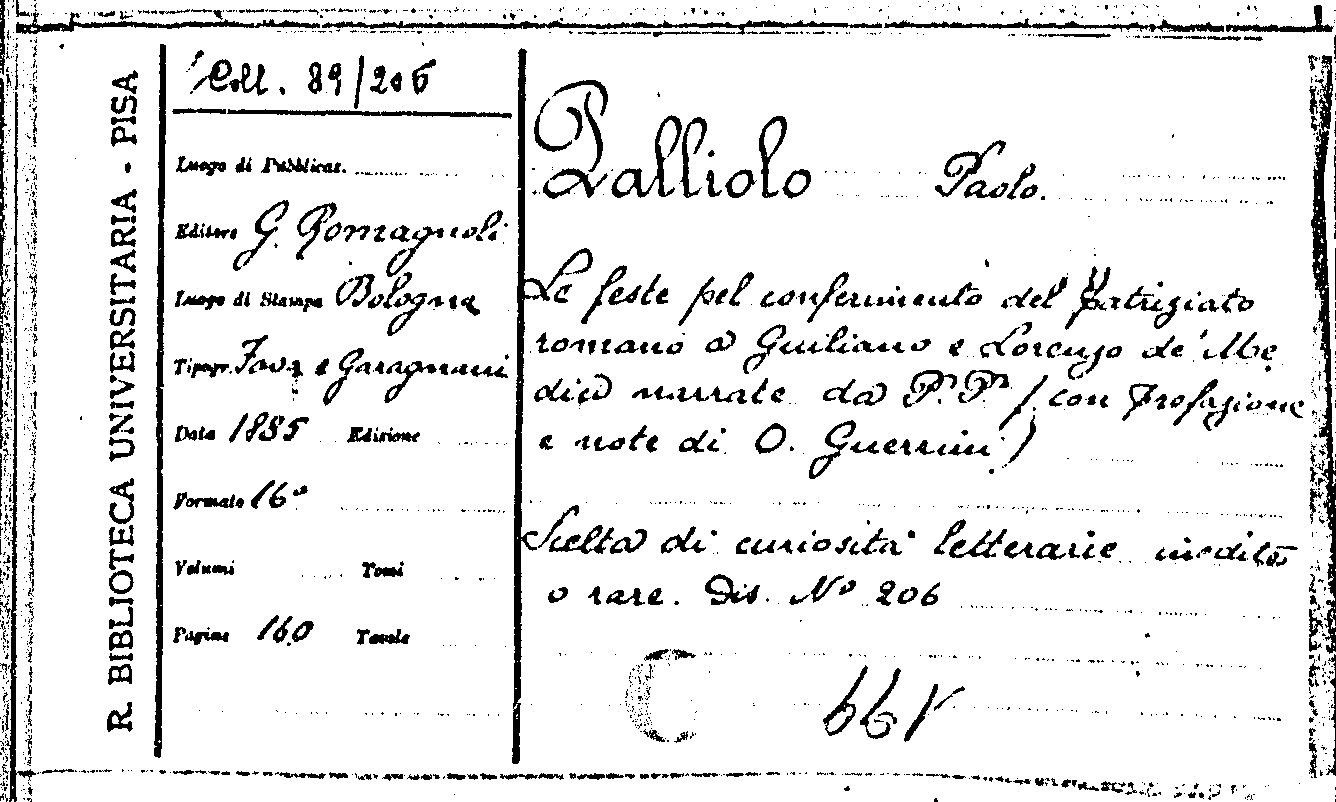 R. BIBLIOTECA UNIVERSITARIA - PISA
Coll. 89/206
Luogo di Pubblicaz.
Editore G. Romagnoli
Luogo di Stampa Bologna
Tipogr. Fava e Garagnani
Data 1885 Edizione
Formato 16°
Volumi Tomi
Pagine 160 Tavole
Palliolo Paolo.
Le feste pel conferimento del Patriziato
romano a Giuliano e Lorenzo de' Me
dici narrate da P. P. (con prefazione
e note di O. Guerrini)
Scelta di curiosità letterarie inedite
o rare. Dis. N° 206
C